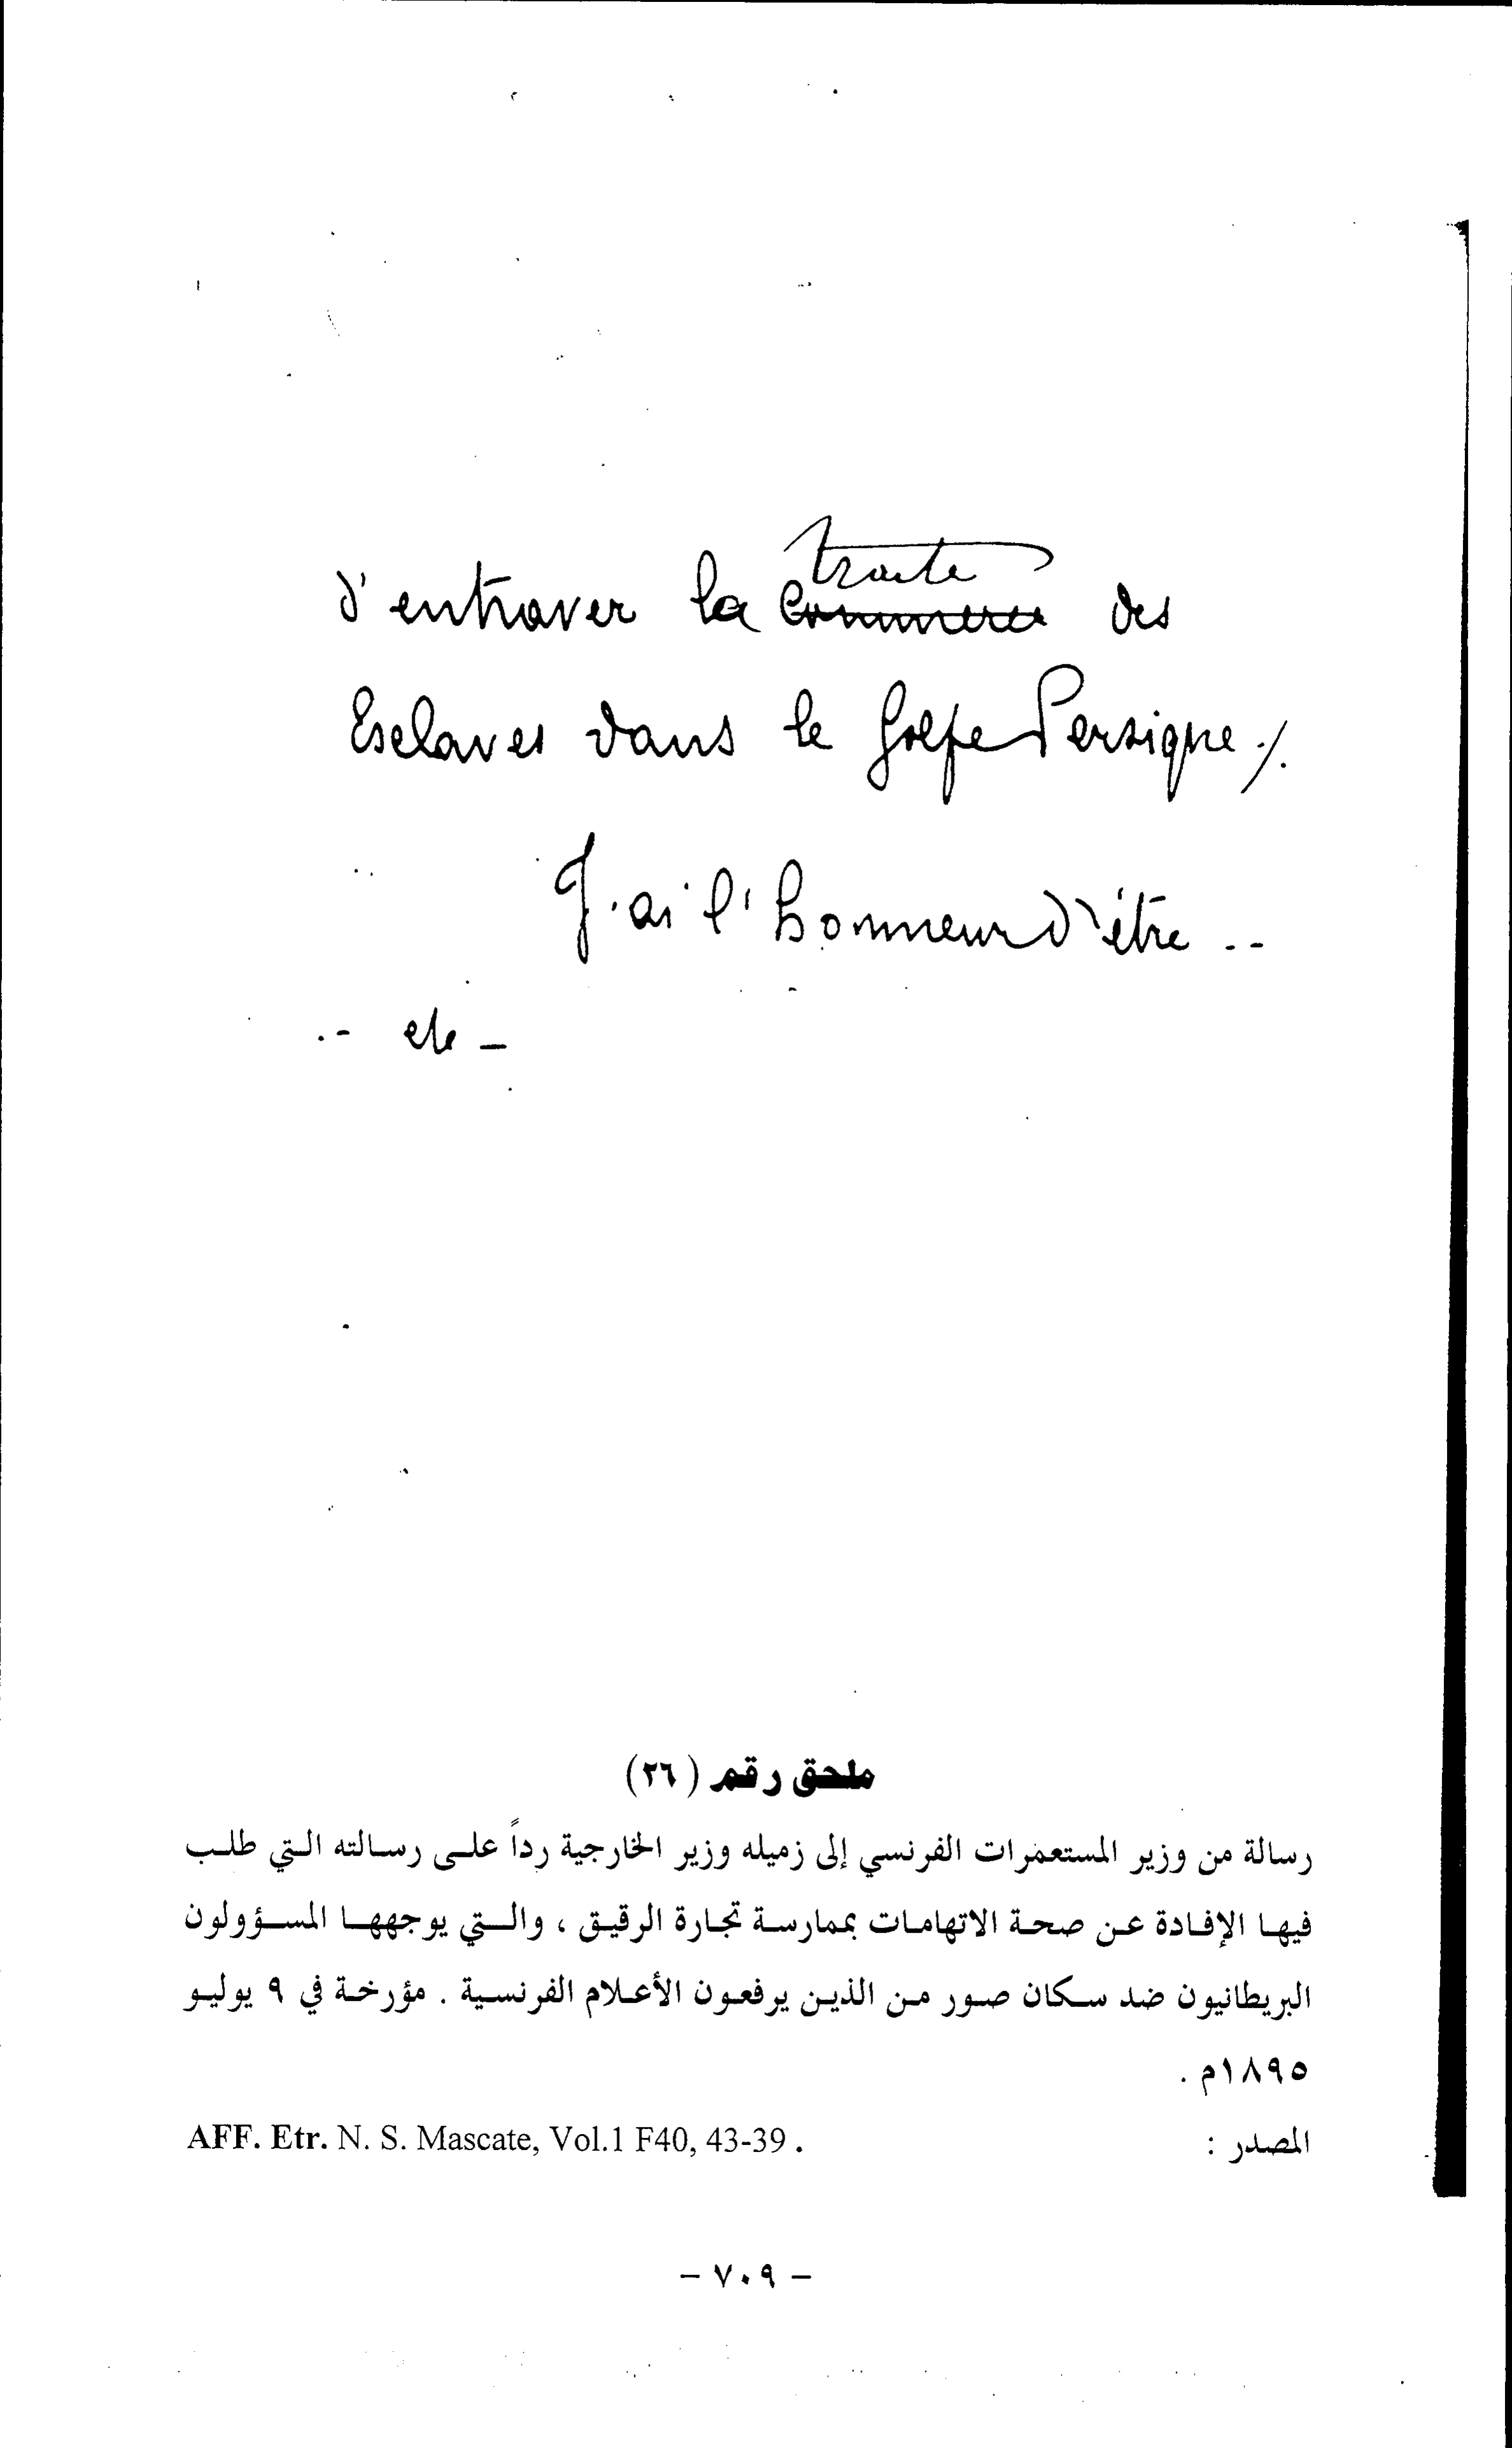 d'entraver la traite commerce des
Esclaves dans le Golfe Persique ./.
J'ai l'honneur d'être --
.- etc -
ملحق رقم (٢٦)
رسالة من وزير المستعمرات الفرنسي إلى زميله وزير الخارجية رداً على رسالته التي طلب
فيها الإفادة عن صحة الاتهامات بممارسة تجارة الرقيق ، والتي يوجهها المسؤولون
البريطانيون ضد سكان صور من الذين يرفعون الأعلام الفرنسية . مؤرخة في ٩ يوليو
١٨٩٥م .
المصدر : AFF. Etr. N. S. Mascate, Vol.1 F40, 43-39 .
- ٧٠٩ -